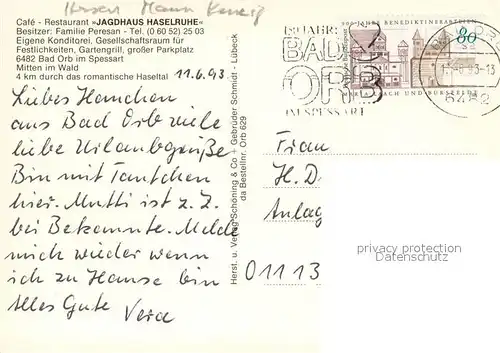 Café - Restaurant »JAGDHAUS HASELRUHE«
Besitzer: Familie Peresan - Tel. (0 60 52) 25 03
Eigene Konditorei, Gesellschaftsraum für
Festlichkeiten, Gartengrill, großer Parkplatz
6482 Bad Orb im Spessart
Mitten im Wald
4 km durch das romantische Haseltal
11.6.93
Liebes Hannchen
aus Bad Orb viele
liebe Urlaubsgrüße
Bin mit Tantchen
hier. Mutti ist z. Z.
bei Bekannte. Melde
mich wieder wenn
ich zu Hause bin
Alles Gute
Vera
Herst. u. Verlag Schöning & Co + Gebrüder Schmidt - Lübeck
da Bestellnr. Orb 629
JAHRE BENEDIKTINERABTEIEN
80
MARIA LAACH UND BURSFELDE
BAD
ORB
IM SPESSART
6482
Frau
H. D.
Anlag
01113
privacy protection
Datenschutz